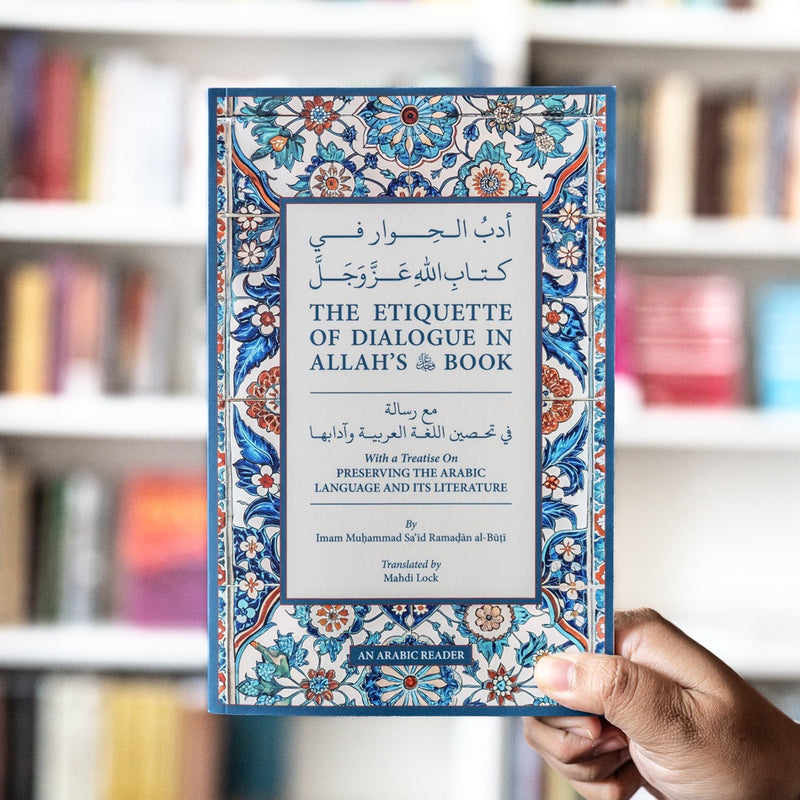 أدبُ الـحِـوار فـي
كـتـابِ اللهِ عَـزَّ وَجَـلَّ
THE ETIQUETTE
OF DIALOGUE IN
ALLAH'S ﷻ BOOK
مع رسالة
في تحصين اللغة العربية وآدابها
With a Treatise On
PRESERVING THE ARABIC
LANGUAGE AND ITS LITERATURE
By
Imam Muḥammad Sa‘id Ramaḍān al-Būṭī
Translated by
Mahdi Lock
AN ARABIC READER